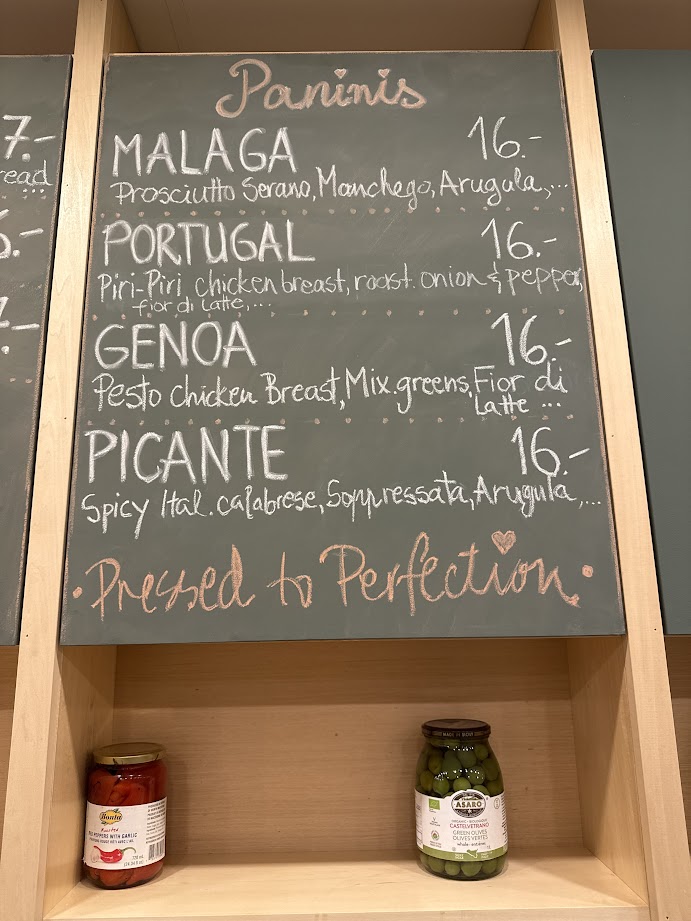 Paninis
7.-
read
MALAGA 16.-
Prosciutto Serano, Manchego, Arugula,...
PORTUGAL 16.-
Piri-Piri chicken breast, roast. onion & pepper,
fior di latte,...
GENOA 16.-
Pesto chicken Breast, Mix.greens, Fior di
Latte ...
PICANTE 16.-
Spicy Ital. calabrese, Soppressata, Arugula,...
• Pressed to Perfection •
Bonta
Roasted
PEPPERS WITH GARLIC
720 mL
ASARO
ORGANIC • BIOLOGIQUE
CASTELVETRANO
GREEN OLIVES
OLIVES VERTES
whole • entières